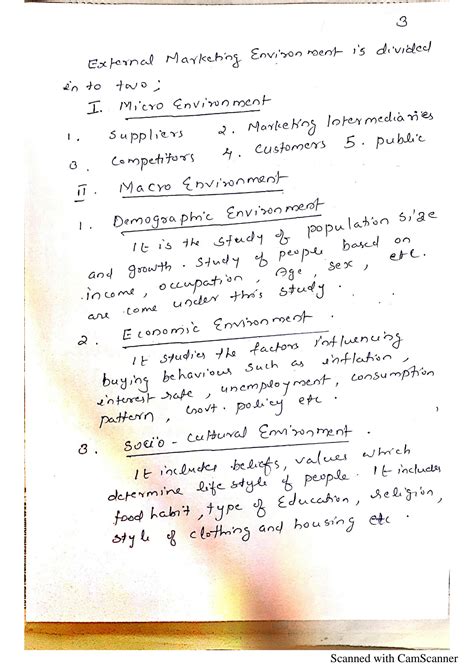 3
External Marketing Environment is divided
in to two ;
I. Micro Environment
1. Suppliers 2. Marketing Intermediaries
3. Competitors 4. Customers 5. public
II. Macro Environment
1. Demographic Environment
It is the study of population size
and growth. Study of people based on
income, occupation, Age, sex, etc.
are come under this study.
2. Economic Environment.
It studies the factors influencing
buying behaviour such as inflation,
interest rate, unemployment, consumption
pattern, Govt. policy etc.
3. Socio-Cultural Environment.
It includes beliefs, values which
determine life style of people. It includes
food habit, type of Education, religion,
style of clothing and housing etc.
Scanned with CamScanner